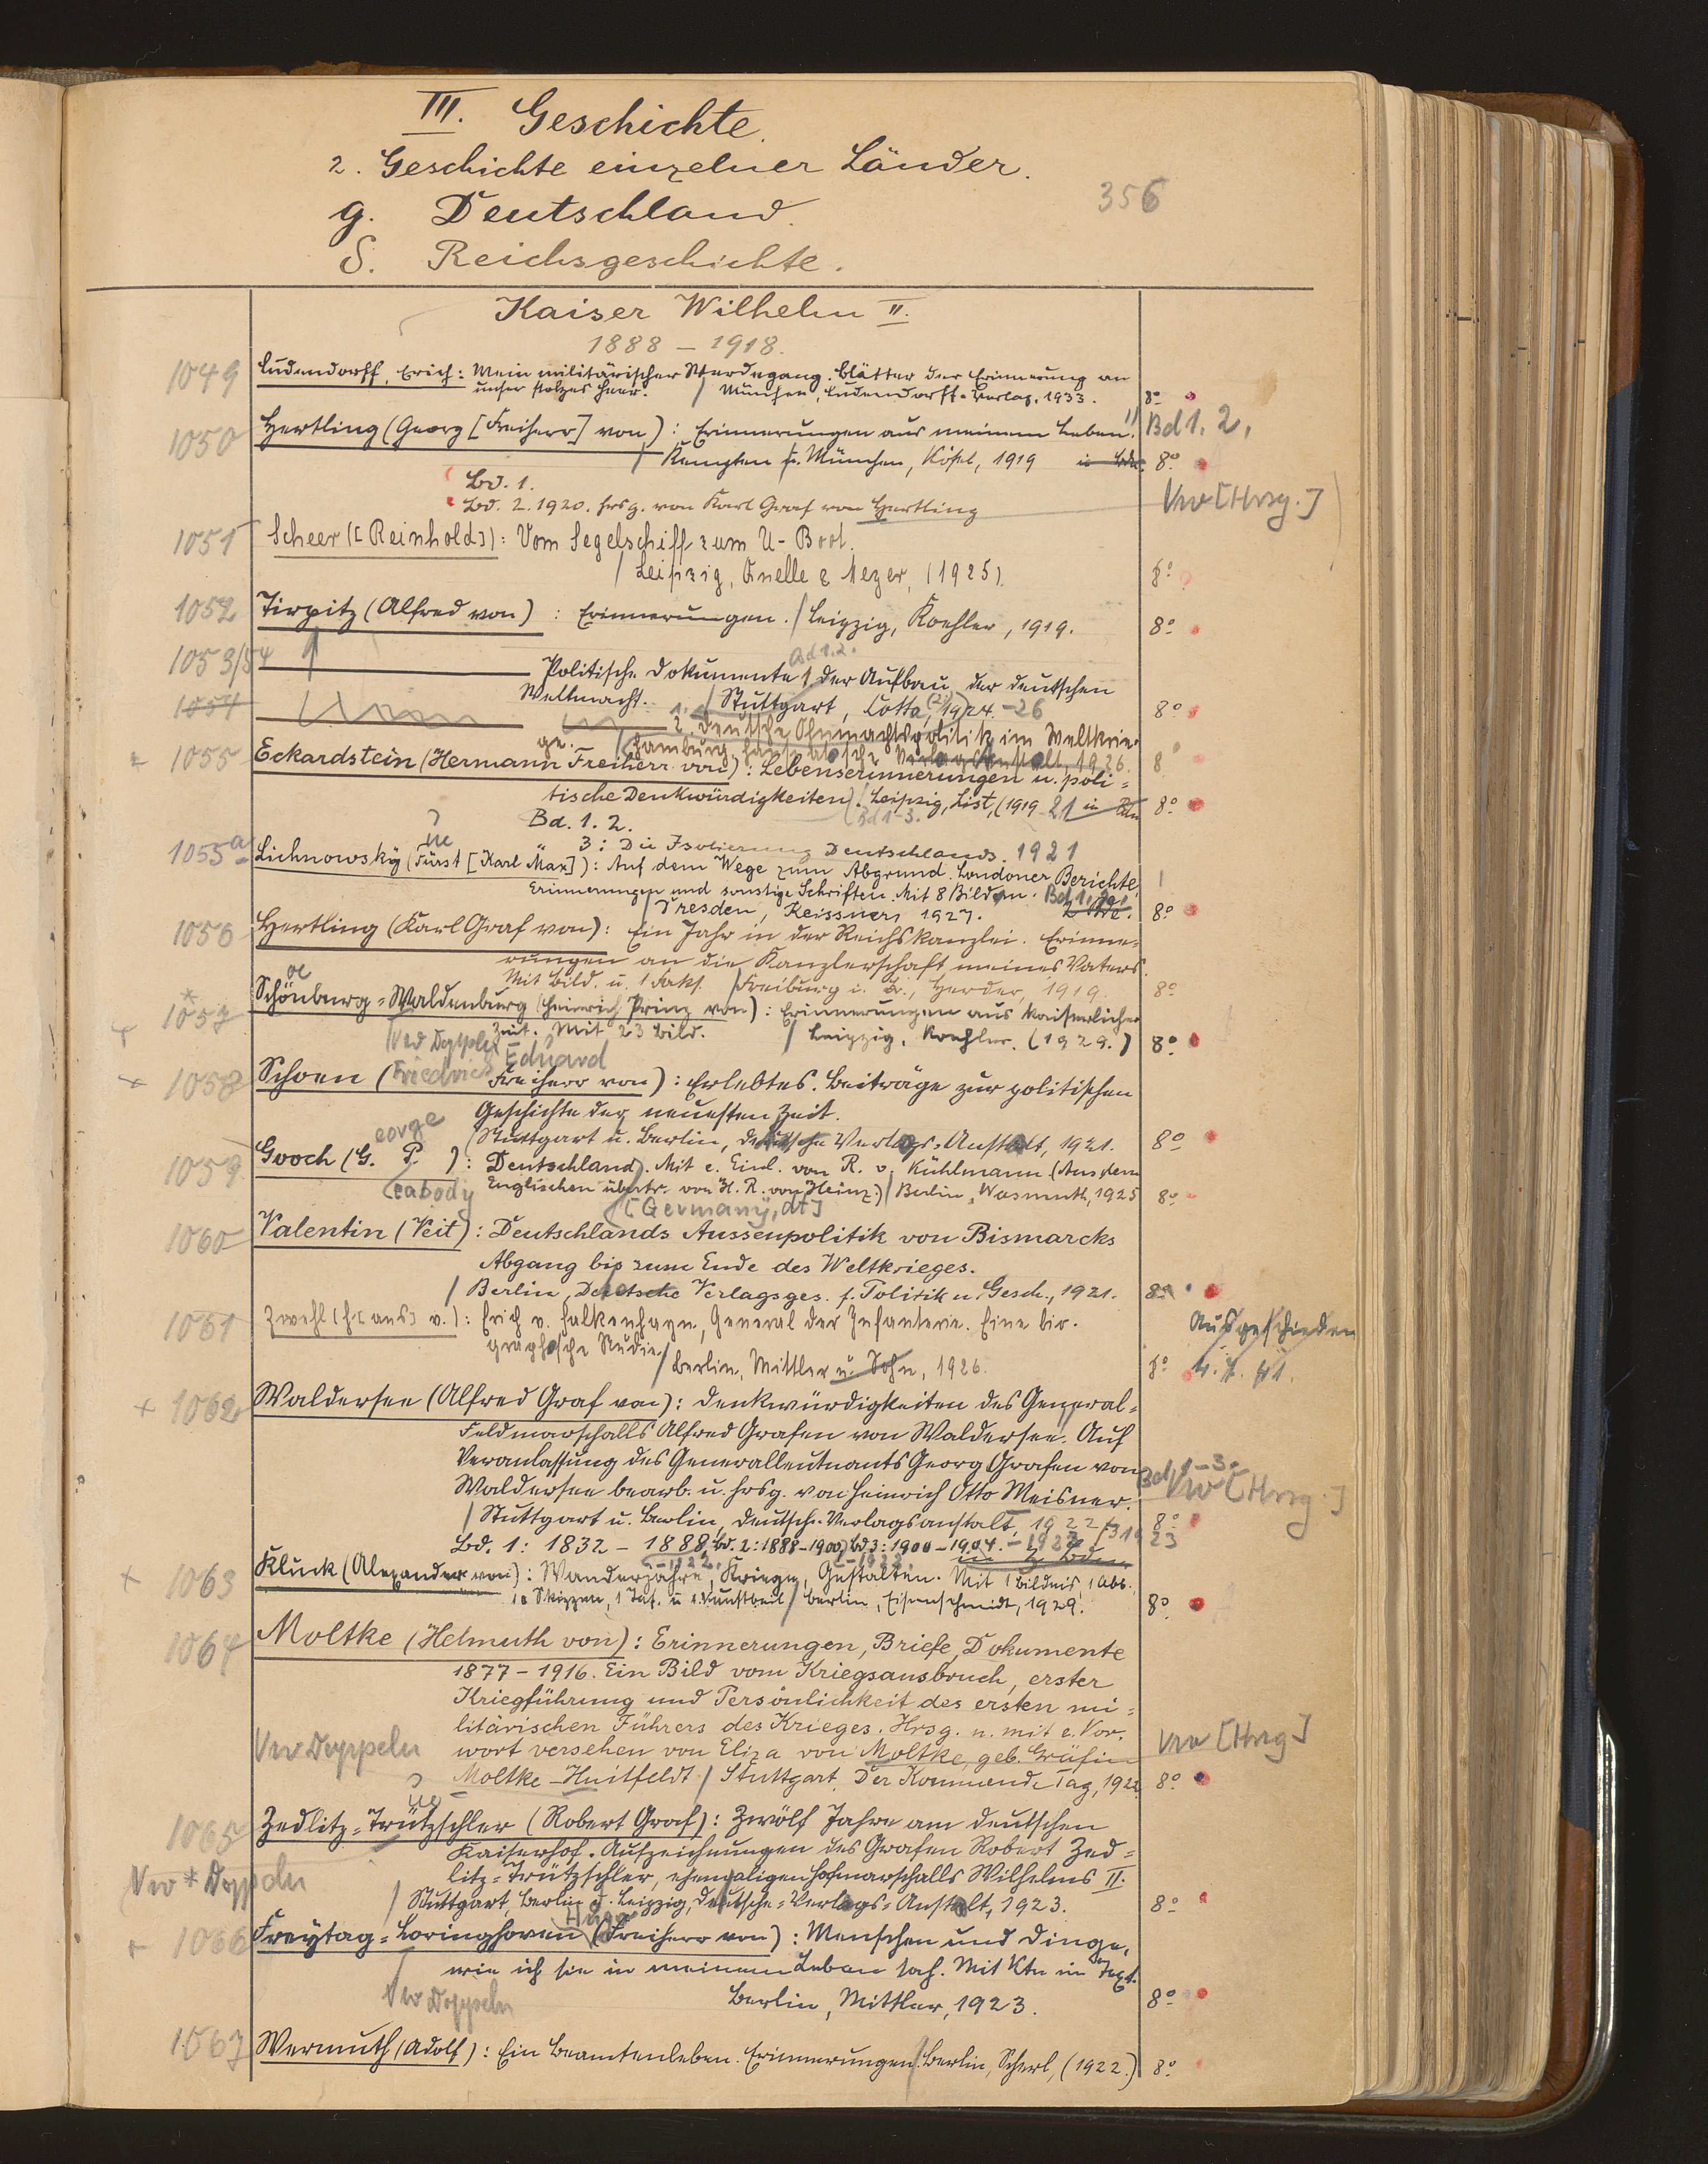 III. Geschichte.
2. Geschichte einzelner Länder.
356
g. Deutschland.
δ. Reichsgeschichte.
Kaiser Wilhelm II.
1888 – 1918.
1049 Ludendorff, Erich: Mein militärischer Werdegang. Blätter der Erinnerung an
unser stolzes Heer. / München, Ludendorff-Verlag, 1933. 8°
1050 Hertling (Georg [Freiherr] von): Erinnerungen aus meinem Leben. Bd 1. 2.
/ Kempten u. München, Kösel, 1919 8°
Bd. 1.
Bd. 2. 1920. hrsg. von Karl Graf von Hertling Vw [Hrsg.]
1051 Scheer ([Reinhold]): Vom Segelschiff zum U-Boot.
/ Leipzig, Quelle & Meyer, (1925). 8°
1052 Tirpitz (Alfred von): Erinnerungen. / Leipzig, Koehler, 1919. 8°
Bd 1.2.
1053/54 Politische Dokumente 1 der Aufbau der deutschen
1054 Weltmacht. / Stuttgart, Cotta, 1924. –26 8°
2. Deutsche Ohnmachtspolitik im Weltkrie-
ge. / Hamburg, Hanseatische Verlagsanstalt, 1926. 8°
1055 Eckardstein (Hermann Freiherr von): Lebenserinnerungen u. poli-
tische Denkwürdigkeiten. / Leipzig, List, (1919–21 8°
Bd 1-3.
Bd. 1. 2.
" 3: Die Isolierung Deutschlands. 1921
1055a Lichnowsky (Fürst [Karl Max]): Auf dem Wege zum Abgrund. Londoner Berichte,
Erinnerungen und sonstige Schriften. Mit 8 Bildern. Bd 1. 2.
/ Dresden, Reissner, 1927. 2 Bde. 8°
1056 Hertling (Karl Graf von): Ein Jahr in der Reichskanzlei. Erinne-
rungen an die Kanzlerschaft meines Vaters.
Mit Bild. u. 1 Faks. / Freiburg i. Br., Herder, 1919. 8°
oe
* 1057 Schönburg-Waldenburg (Heinrich Prinz von): Erinnerungen aus kaiserlicher
Zeit. Mit 23 Bild. / Leipzig, Koehler. (1929.) 8°
1058 Schoen (Friedrich Eduard Freiherr von): Erlebtes. Beiträge zur politischen
Geschichte der neuesten Zeit.
/ Stuttgart u. Berlin, Deutsche Verlags-Anstalt, 1921. 8°
eorge
1059 Gooch (G. P. ): Deutschland. Mit e. Einl. von R. v. Kühlmann (Aus dem
eabody Englischen übertr. von H. R. von Heinz.) / Berlin, Wasmuth, 1925 8°
[Germany, dt]
1060 Valentin (Veit): Deutschlands Aussenpolitik von Bismarcks
Abgang bis zum Ende des Weltkrieges.
/ Berlin, Deutsche Verlagsges. f. Politik u. Gesch., 1921. 8°
1061 Zwehl (H[ans] v.): Erich v. Falkenhayn, General der Infanterie. Eine bio- Ausgeschieden
graphische Studie.
/ Berlin, Mittler u. Sohn, 1926. 8°
1062 Waldersee (Alfred Graf von): Denkwürdigkeiten des General-
Feldmarschalls Alfred Grafen von Waldersee. Auf
Veranlassung des Generalleutnants Georg Grafen von
Waldersee bearb. u. hrsg. von Heinrich Otto Meisner. Bd 1-3. Vw [Hrsg.]
/ Stuttgart u. Berlin, Deutsche Verlagsanstalt, 1922 8°
Bd. 1: 1832 – 1888, Bd. 2: 1888–1900, Bd 3: 1900–1904. –1923
1063 Kluck (Alexander von): Wanderjahre, Kriege, Gestalten. Mit 1 Bildnis, 1 Abb.,
Skizzen, 1 Taf. u. 1 Kunstbeil / Berlin, Eisenschmidt, 1929. 8°
1064 Moltke (Helmuth von): Erinnerungen, Briefe, Dokumente
1877 – 1916. Ein Bild vom Kriegsausbruch, erster
Kriegführung und Persönlichkeit des ersten mi-
litärischen Führers des Krieges. Hrsg. u. mit e. Vor-
Vw Doppeln wort versehen von Eliza von Moltke, geb. Gräfin Vw [Hrsg]
Moltke-Huitfeldt / Stuttgart, Der Kommende Tag, 1922 8°
ue
1065 Zedlitz-Trützschler (Robert Graf): Zwölf Jahre am deutschen
Kaiserhof. Aufzeichnungen des Grafen Robert Zed-
Vw * Doppeln litz-Trützschler, ehemaligen Hofmarschalls Wilhelms II.
/ Stuttgart, Berlin u. Leipzig, Deutsche-Verlags-Anstalt, 1923. 8°
Hugo
1066 Freytag-Loringhoven (Freiherr von): Menschen und Dinge,
wie ich sie in meinem Leben sah. Mit Ktn im Text.
Vw Doppeln Berlin, Mittler, 1923. 8°
1067 Wermuth (Adolf): Ein Beamtenleben. Erinnerungen. / Berlin, Scherl, (1922.) 8°